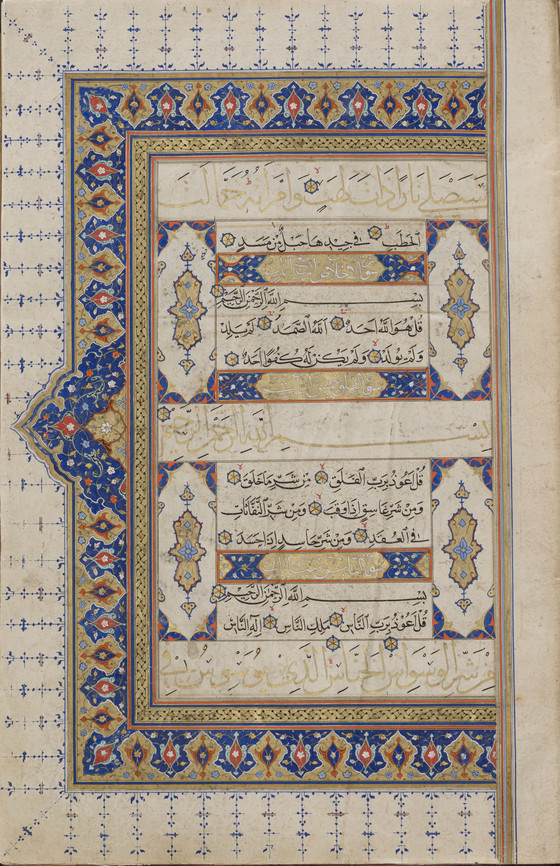 سَيَصْلَىٰ نَارًا ذَاتَ لَهَبٍ وَامْرَأَتُهُ حَمَّالَةَ
الْحَطَبِ فِي جِيدِهَا حَبْلٌ مِنْ مَسَدٍ
سورة
بِسْمِ اللَّهِ الرَّحْمَٰنِ الرَّحِيمِ
قُلْ هُوَ اللَّهُ أَحَدٌ اللَّهُ الصَّمَدُ لَمْ يَلِدْ
وَلَمْ يُولَدْ وَلَمْ يَكُنْ لَهُ كُفُوًا أَحَدٌ
سورة الفلق
بِسْمِ اللَّهِ الرَّحْمَٰنِ الرَّحِيمِ
قُلْ أَعُوذُ بِرَبِّ الْفَلَقِ مِنْ شَرِّ مَا خَلَقَ
وَمِنْ شَرِّ غَاسِقٍ إِذَا وَقَبَ وَمِنْ شَرِّ النَّفَّاثَاتِ
فِي الْعُقَدِ وَمِنْ شَرِّ حَاسِدٍ إِذَا حَسَدَ
سورة
بِسْمِ اللَّهِ الرَّحْمَٰنِ الرَّحِيمِ
قُلْ أَعُوذُ بِرَبِّ النَّاسِ مَلِكِ النَّاسِ إِلَٰهِ النَّاسِ
مِنْ شَرِّ الْوَسْوَاسِ الْخَنَّاسِ الَّذِي يُوَسْوِسُ فِي